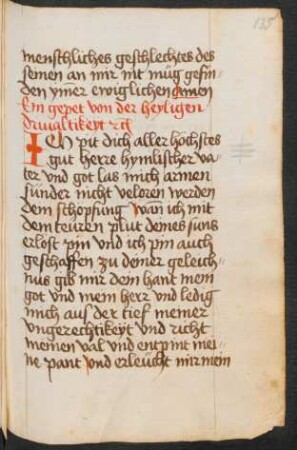 135
menschliches geschlechtes des
semen an mir nit müg gefin
den ymer ewiglichen amen
Ein gepet von der heyligen
drivaltikeyt etc
Ich pit dich aller höchstes
gut herre hymlischer va
ter vnd got las mich armen
sünder nicht veloren werden
dem schopfung wan ich mit
dem teuren plut deines suns
erlöst pin vnd ich pin auch
geschaffen zu deiner geleich
nus gib mir dein hant mein
got vnd mein herr vnd ledig
mich auf der tief meiner
vngerechtikeyt vnd richt
meinen val vnd entpint mei
ne pant vnd erleücht mir mein